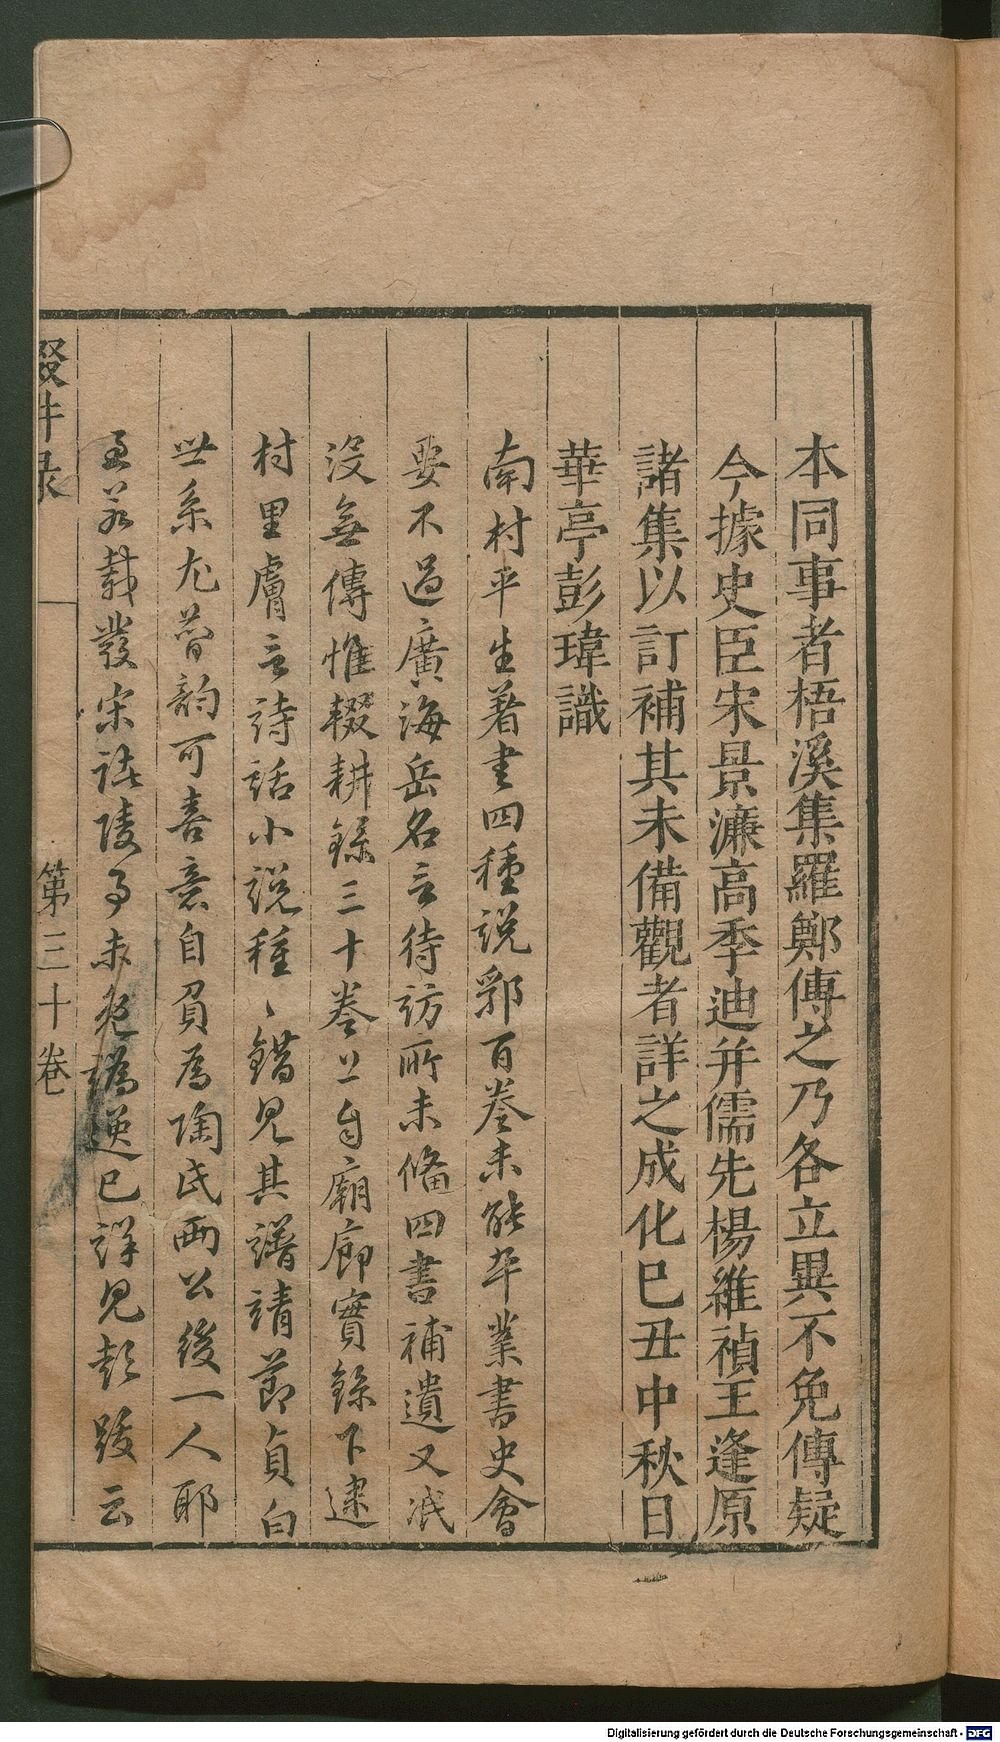 本同事者梧溪集羅鄭傳之乃各立異不免傳疑
今據史臣宋景濂高季迪并儒先楊維禎王逢原
諸集以訂補其未備觀者詳之成化己丑中秋日
華亭彭瑋識
南村平生著書四種説郛百卷未能卒業書史會
要不過廣海岳名言待訪所未偹四書補遺又泯
没無傳惟輟耕錄三十卷上自廟廊實錄下逮
村里膚言詩話小説種〻錯見其譜靖節貞白
世系尤菁韵可喜意自負為陶氏两公後一人耶
至若載發宋諸陵事未免譌逆已詳見彭跋云
輟耕录
第三十卷
Digitalisierung gefördert durch die Deutsche Forschungsgemeinschaft - DFG